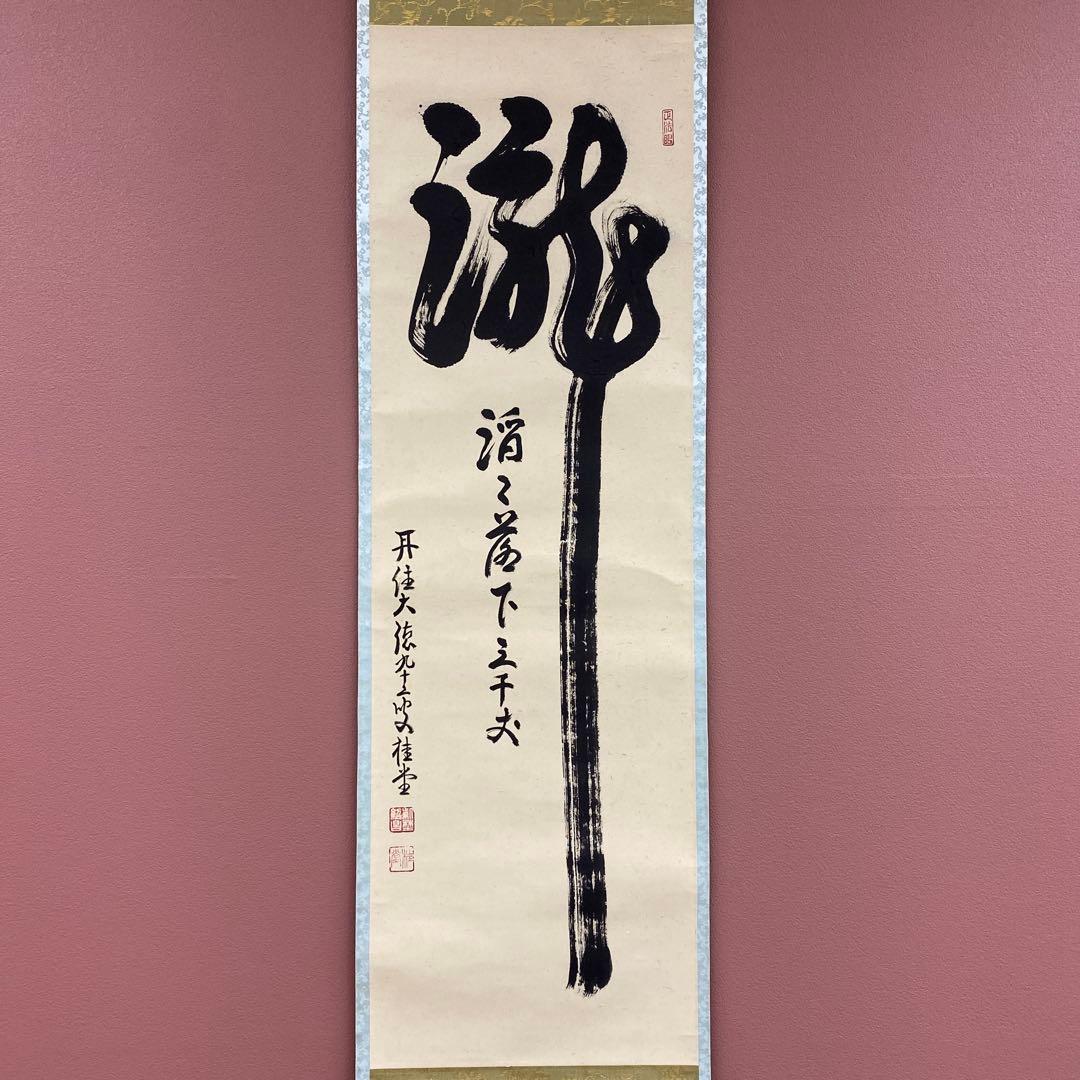 正法眼
瀧
滔々落下三千丈
再住大徳九十二叟桂堂